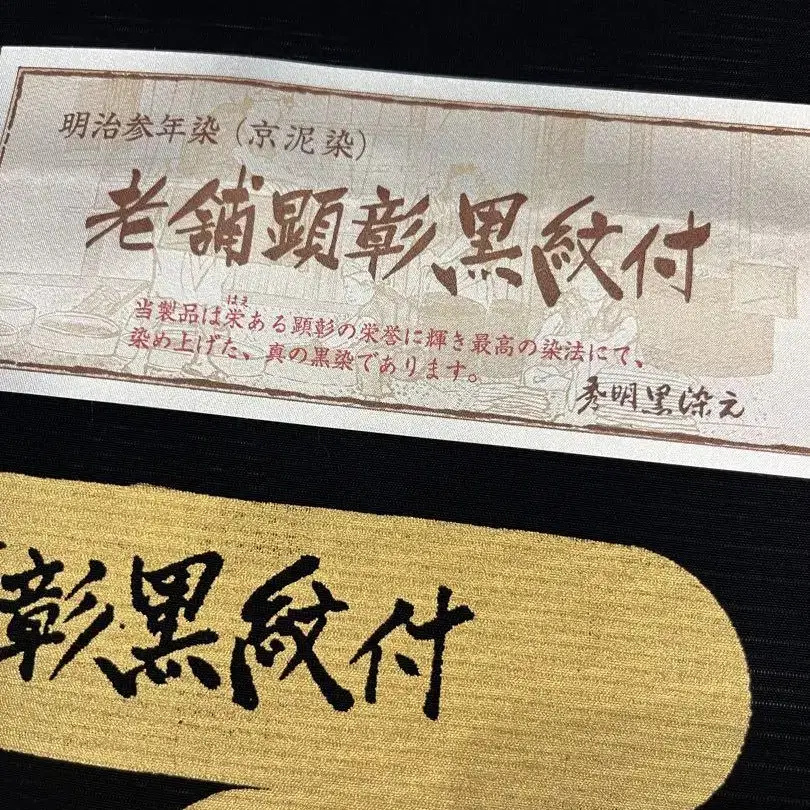 明治参年染（京泥染）
老舗顕彰黒紋付
はえ
当製品は栄ある顕彰の栄誉に輝き最高の染法にて、
染め上げた、真の黒染であります。
秀明黒染元
彰黒紋付